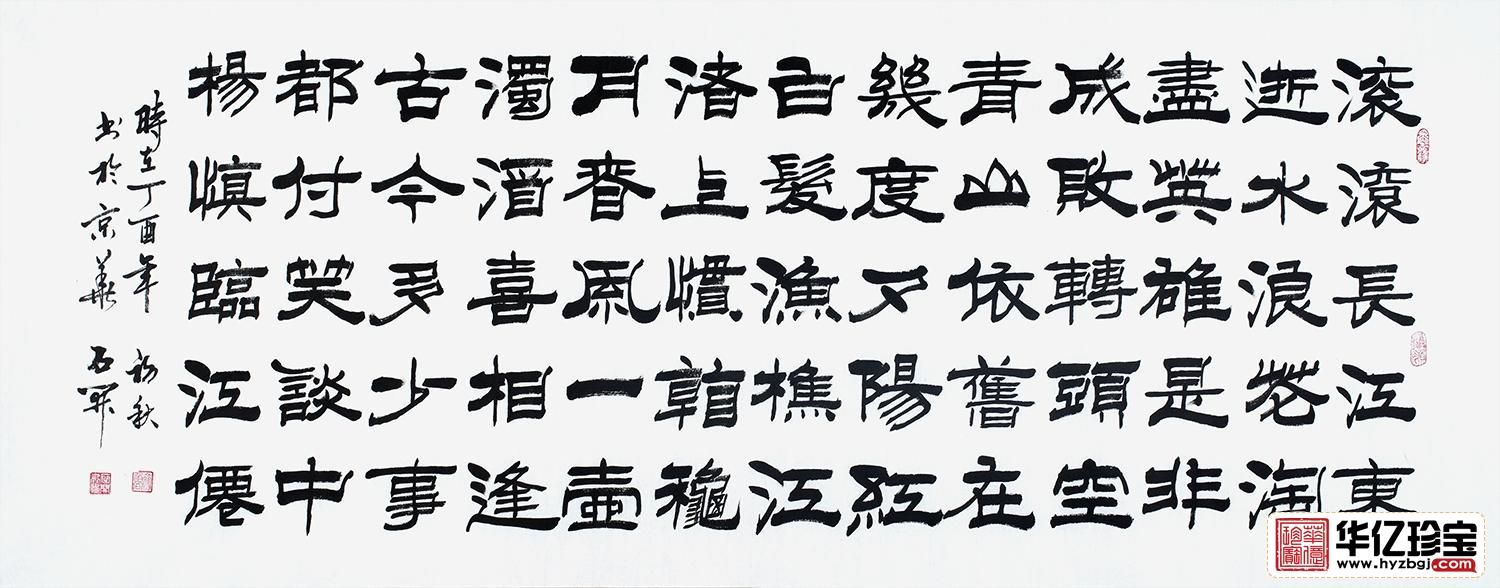 滚滾長江東
逝水浪花淘
盡英雄是非
成敗轉頭空
青山依舊在
幾度夕陽紅
白髮漁樵江
渚上慣看龝
月春風一壺
濁酒喜相逢
古今多少事
都付笑談中
楊慎臨江僊
時在丁酉年初秋
书於京華
华亿珍宝
www.hyzbgj.com